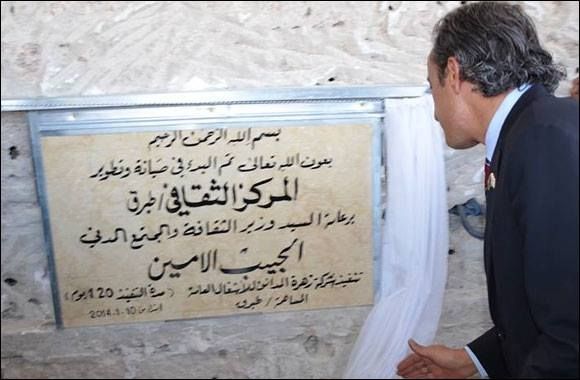 بسم الله الرحمن الرحيم
بعون الله تعالى تم البدء في صيانة وتطوير
المركز الثقافي / طبرق
برعاية السيد وزير الثقافة والمجتمع المدني
الحبيب الامين
تنفيذ شركة زهرة المدائن للأشغال العامة (مدة التنفيذ 120 يوم)
المساهمة / طبرق ابتداء من 10-1-2014